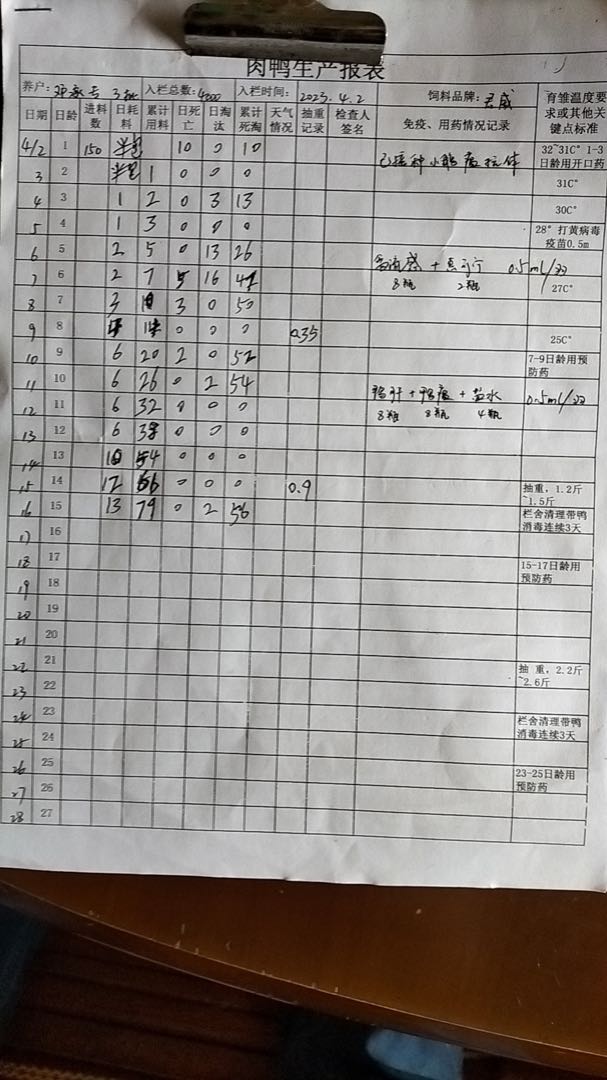 肉鸭生产报表
养户: 3批 入栏总数:4300 入栏时间: 2023.4.2 饲料品牌: 君威 育雏温度要求或其他关键点标准
日期 日龄 进料数 日耗料 累计用料 日死亡 日淘汰 累计死淘 天气情况 抽重记录 检查人签名 免疫、用药情况记录
4/2 1 150 半包 10 0 10 已接种小鹅瘟抗体 32~31C° 1-3日龄用开口药
3 2 半包 1 0 0 0 31C°
4 3 1 2 0 3 13 30C°
5 4 1 3 0 0 0 28° 打黄病毒疫苗0.5m
6 5 2 5 0 13 26 禽流感 + 0.5ml/羽
7 6 2 7 5 16 47 8瓶 2瓶 27C°
8 7 3 10 3 0 50
9 8 4 14 0 0 0 0.35 25C°
10 9 6 20 2 0 52 7-9日龄用预防药
11 10 6 26 0 2 54 鸭肝 + + 盐水 0.5ml/羽
12 11 6 32 0 0 0 8瓶 8瓶 4瓶
13 12 6 38 0 0 0
14 13 54 0 0 0
15 14 12 66 0 0 0 0.9 抽重,1.2斤~1.5斤
16 15 13 79 0 2 56 栏舍清理带鸭消毒连续3天
17 16
18 17 15-17日龄用预防药
19 18
20 19
21 20
22 21 抽 重,2.2斤~2.6斤
23 22
24 23 栏舍清理带鸭消毒连续3天
25 24
26 25 23-25日龄用预防药
27 26
28 27